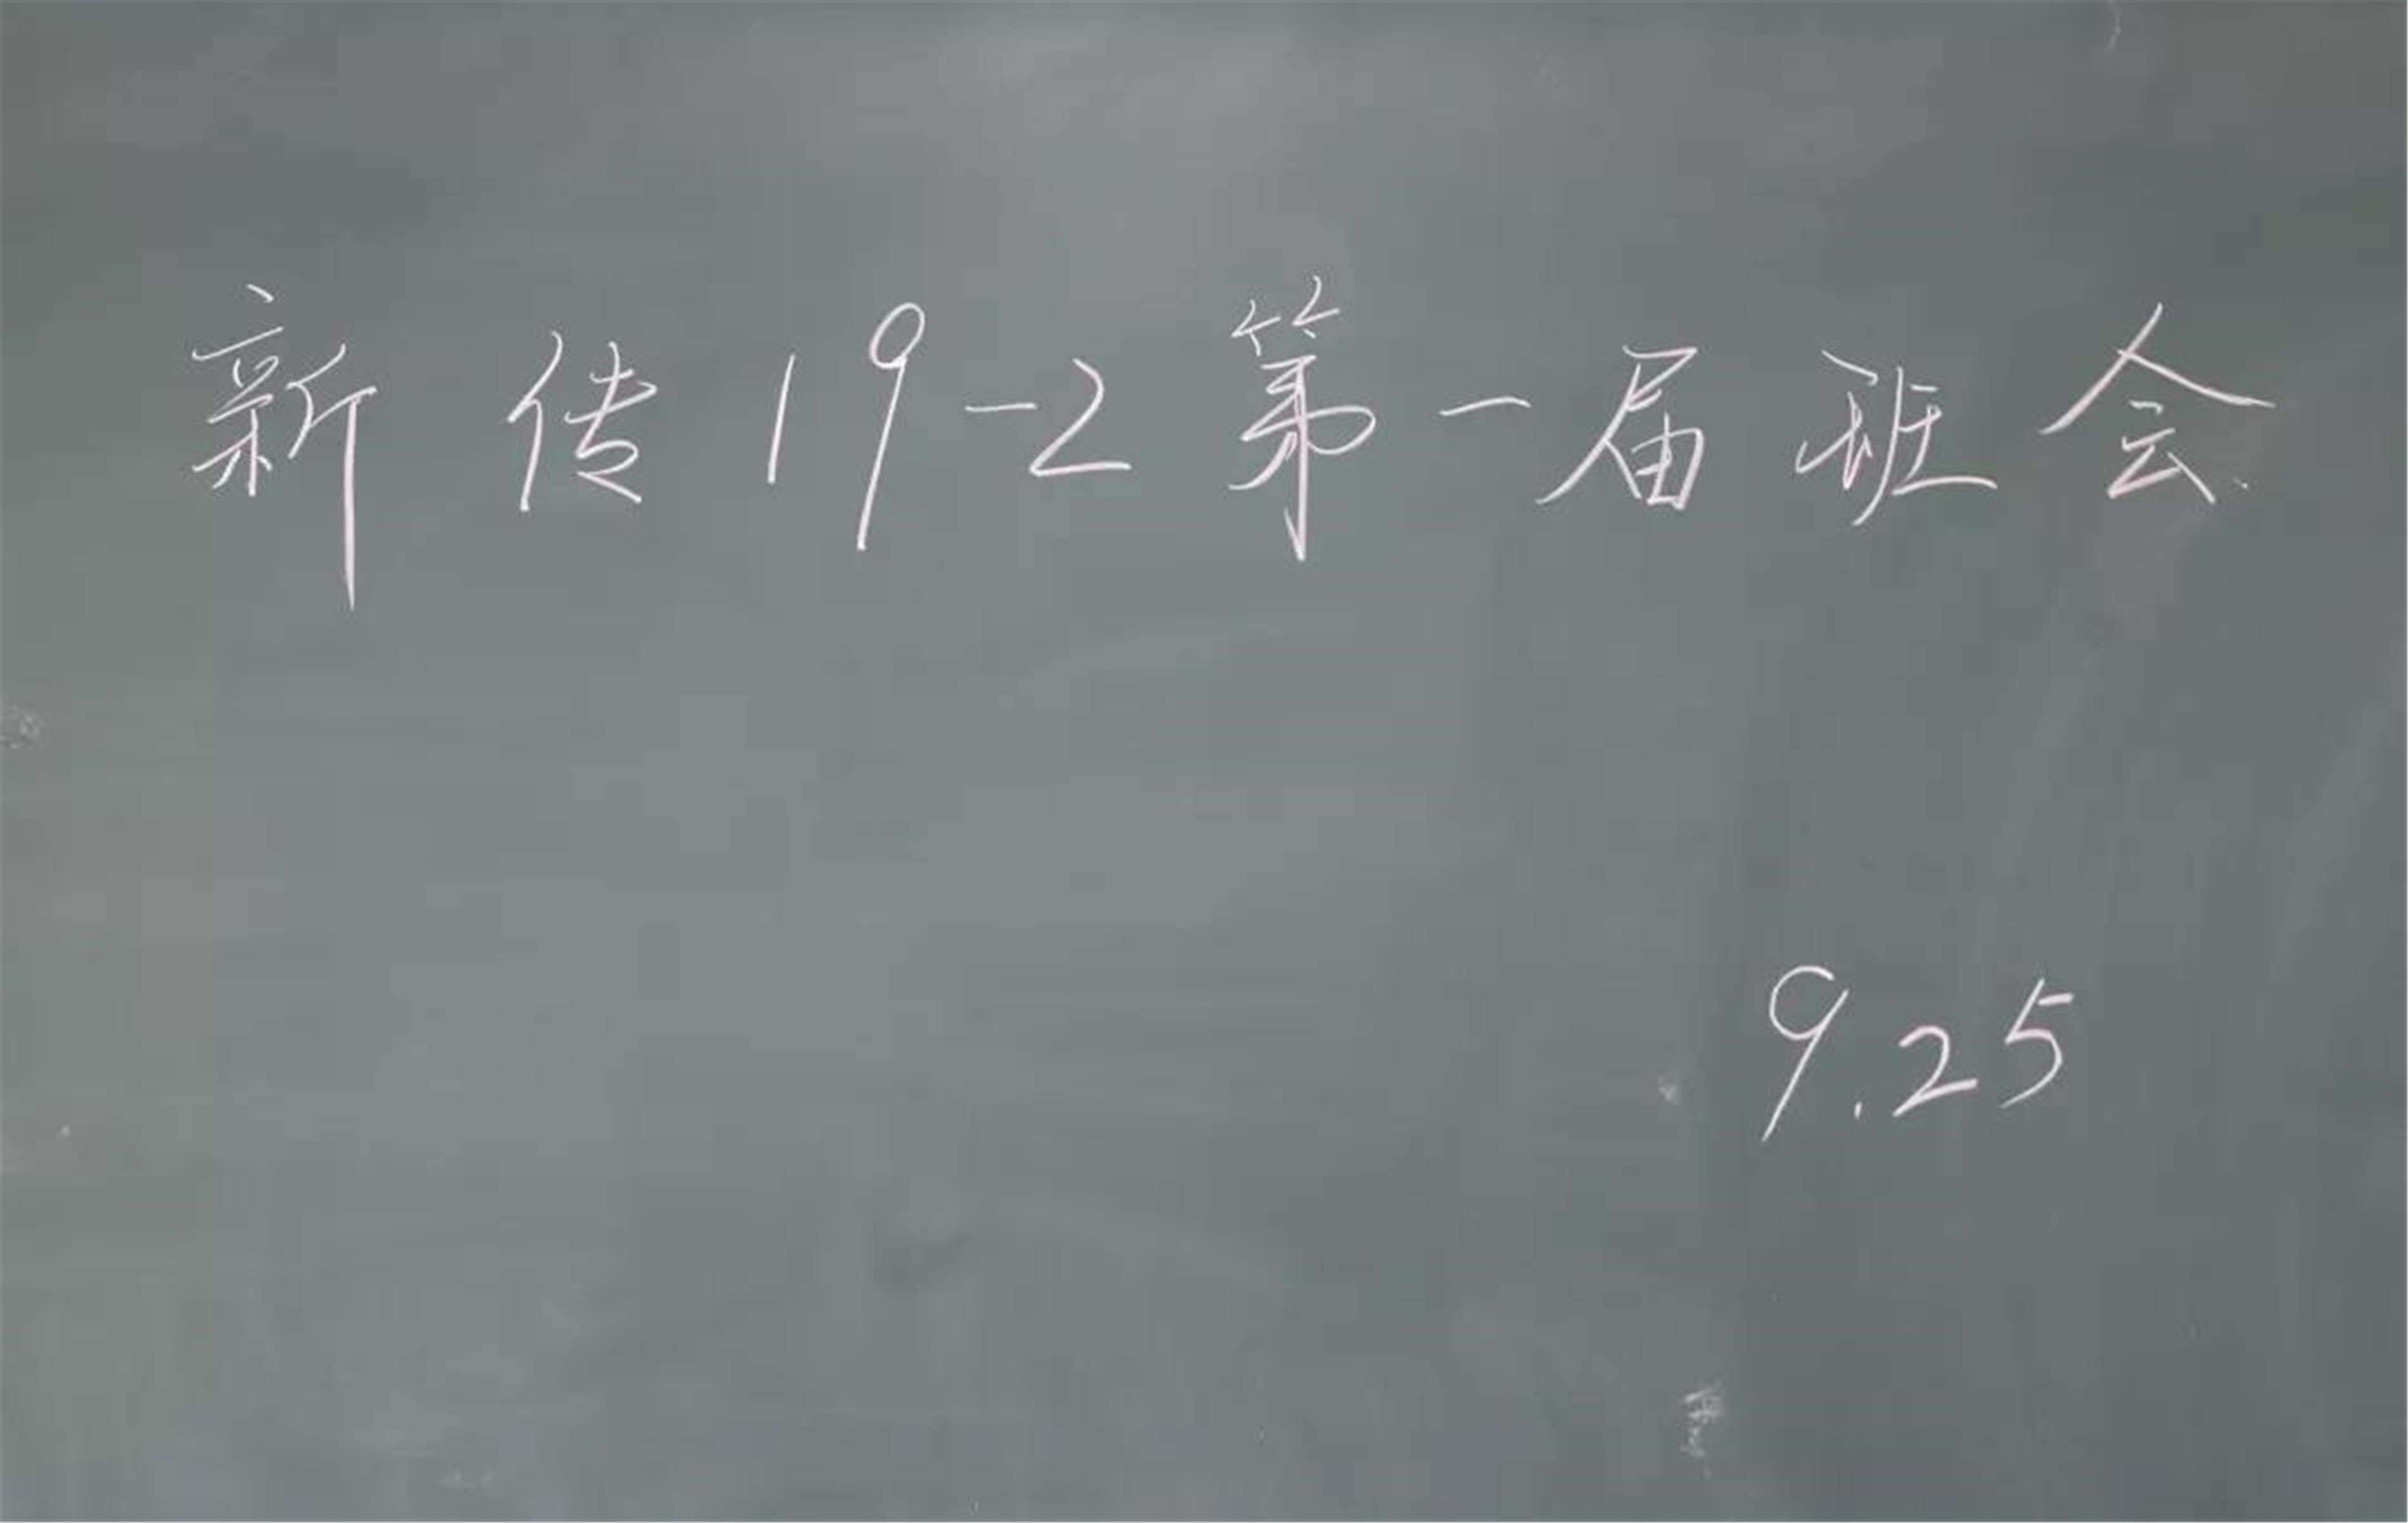 新传19-2第一届班会
9.25